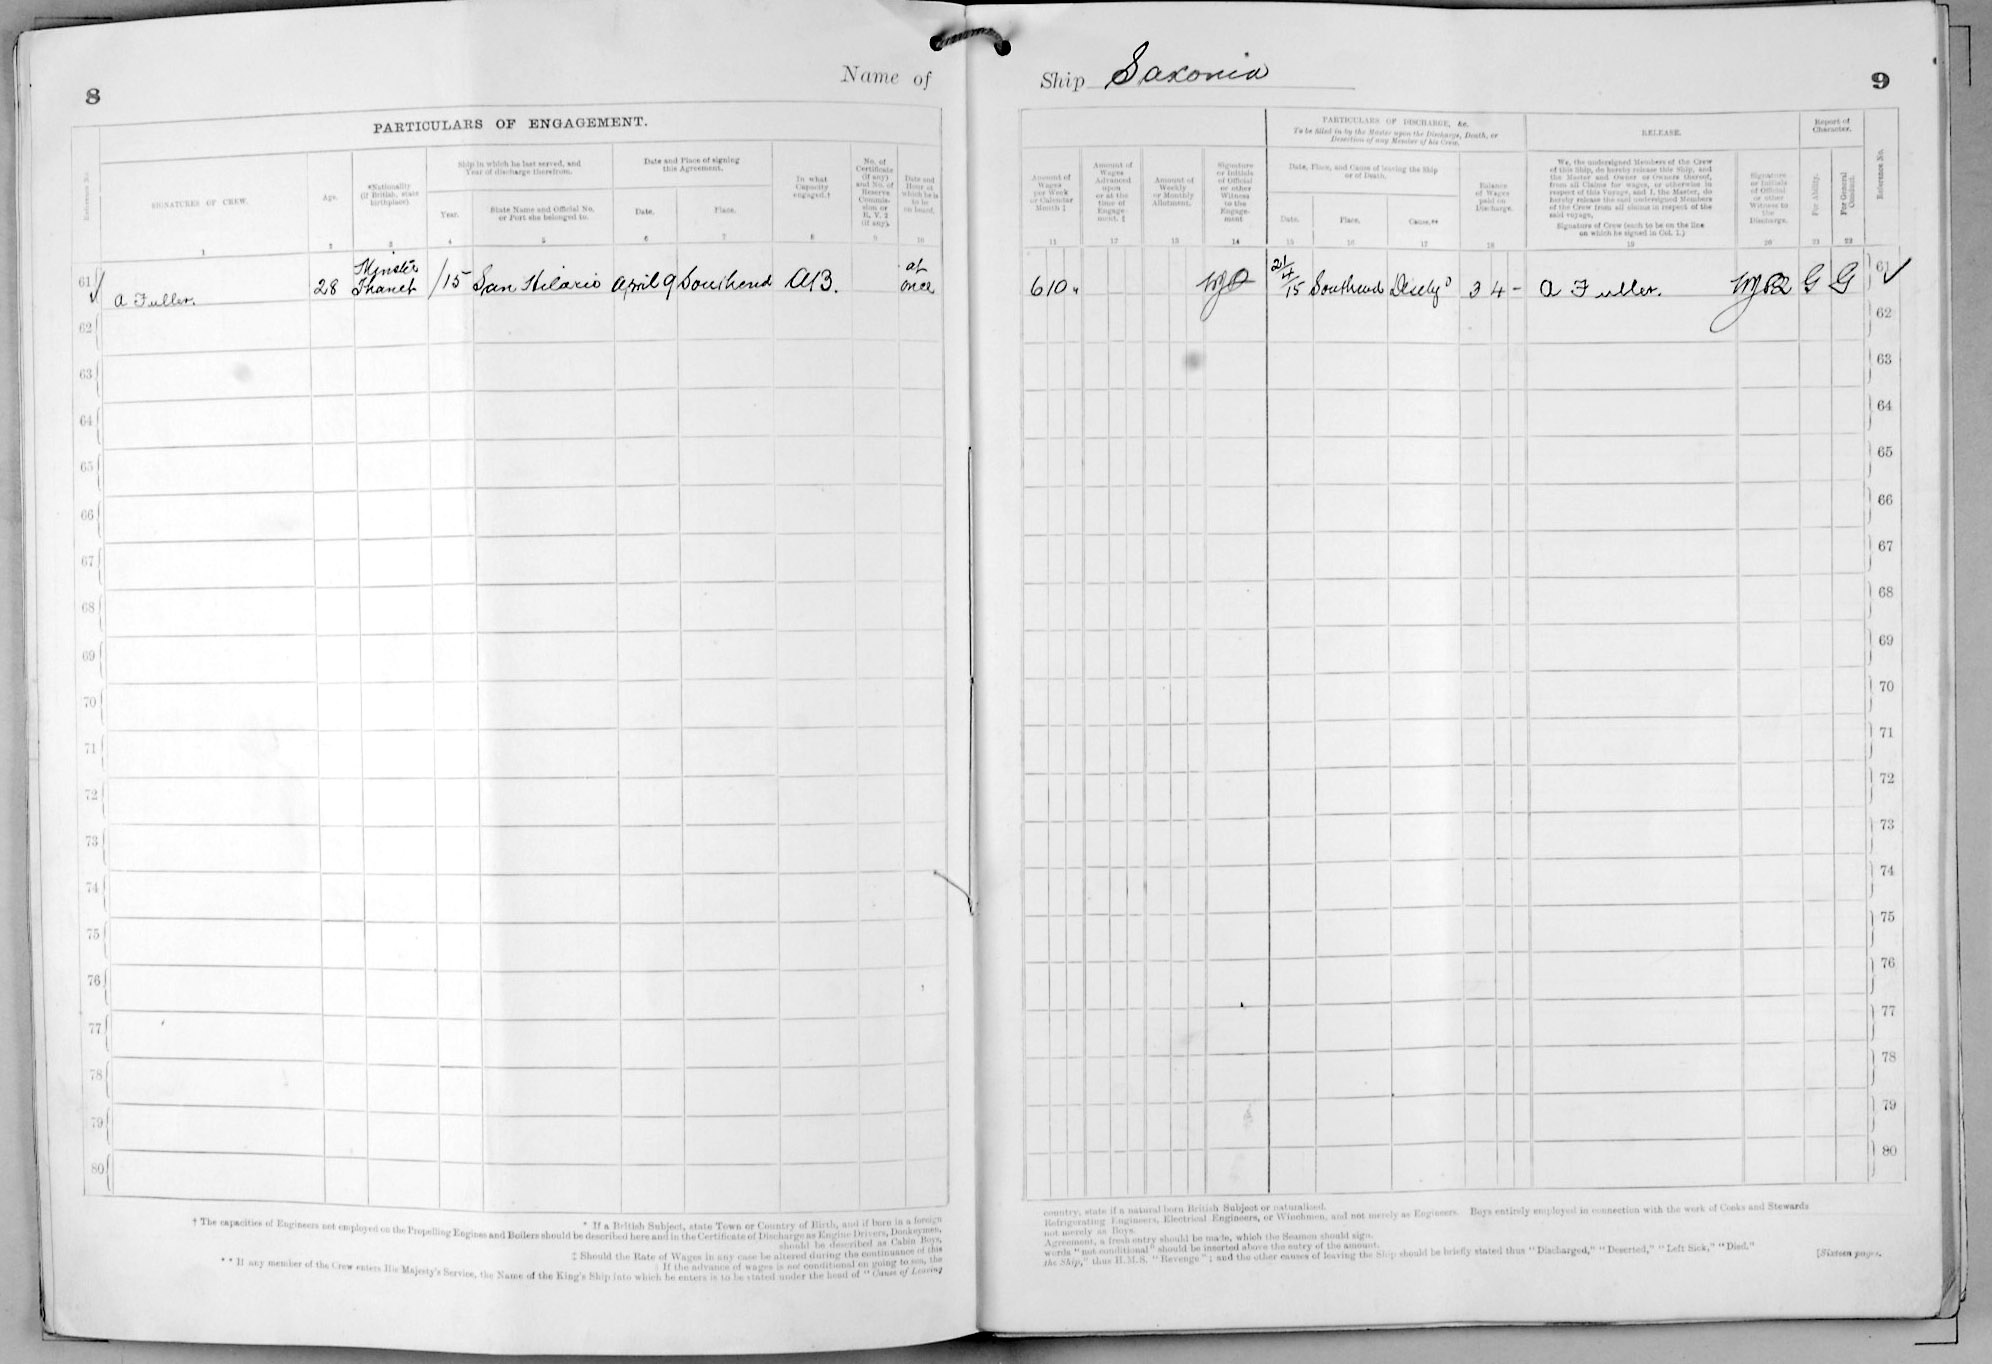 8
Name of
PARTICULARS OF ENGAGEMENT.
Reference No.
SIGNATURES OF CREW.
Age.
*Nationality
(If British, state
birthplace)
Ship in which he last served, and
Year of discharge therefrom.
Year.
State Name and Official No.
or Port she belonged to.
Date and Place of signing
this Agreement.
Date.
Place.
In what
Capacity
engaged.†
No. of
Certificate
(if any)
and No. of
Reserve
Commis-
sion or
R. V. 2
(if any).
Date and
Hour at
which he is
to be
on board.
1 2 3 4 5 6 7 8 9 10
61 A Fuller. 28 Minster Thanet /15 San Hilario April 9 Southend AB. at once
62
63
64
65
66
67
68
69
70
71
72
73
74
75
76
77
78
79
80
* If a British Subject, state Town or Country of Birth, and if born in a foreign
† The capacities of Engineers not employed on the Propelling Engines and Boilers should be described here and in the Certificate of Discharge as Engine Drivers, Donkeymen,
should be described as Cabin Boys,
‡ Should the Rate of Wages in any case be altered during the continuance of this
If the advance of wages is not conditional on going to sea, the
** If any member of the Crew enters His Majesty's Service, the Name of the King's Ship into which he enters is to be stated under the head of "Cause of Leaving
Ship Saxonia
9
PARTICULARS OF DISCHARGE, &c.
To be filled in by the Master upon the Discharge, Death, or
Desertion of any Member of his Crew.
RELEASE.
Report of
Character.
Amount of
Wages
per Week
or Calendar
Month ‡
Amount of
Wages
Advanced
upon
or at the
time of
Engage-
ment. ‡
Amount of
Weekly
or Monthly
Allotment.
Signature
or Initials
of Official
or other
Witness
to the
Engage-
ment
Date, Place, and Cause of leaving the Ship
or of Death.
Date.
Place.
Cause.**
Balance
of Wages
paid on
Discharge.
We, the undersigned Members of the Crew
of this Ship, do hereby release this Ship, and
the Master and Owner or Owners thereof,
from all Claims for wages, or otherwise in
respect of this Voyage, and I, the Master, do
hereby release the said undersigned Members
of the Crew from all claims in respect of the
said voyage,
Signature of Crew (each to be on the line
on which he signed in Col. 1.)
Signature
or Initials
of Official
or other
Witness to
the
Discharge.
For Ability.
For General
Conduct.
Reference No.
11 12 13 14 15 16 17 18 19 20 21 22
6 10 " 21/4/15 Southend Dischgd 3 4 - A Fuller. G G 61
62
63
64
65
66
67
68
69
70
71
72
73
74
75
76
77
78
79
80
country, state if a natural born British Subject or naturalised.
Refrigerating Engineers, Electrical Engineers, or Winchmen, and not merely as Engineers. Boys entirely employed in connection with the work of Cooks and Stewards
not merely as Boys.
Agreement, a fresh entry should be made, which the Seamen should sign.
words "not conditional" should be inserted above the entry of the amount.
the Ship," thus H.M.S. "Revenge"; and the other causes of leaving the Ship should be briefly stated thus "Discharged," "Deserted," "Left Sick," "Died."
[Sixteen pages.